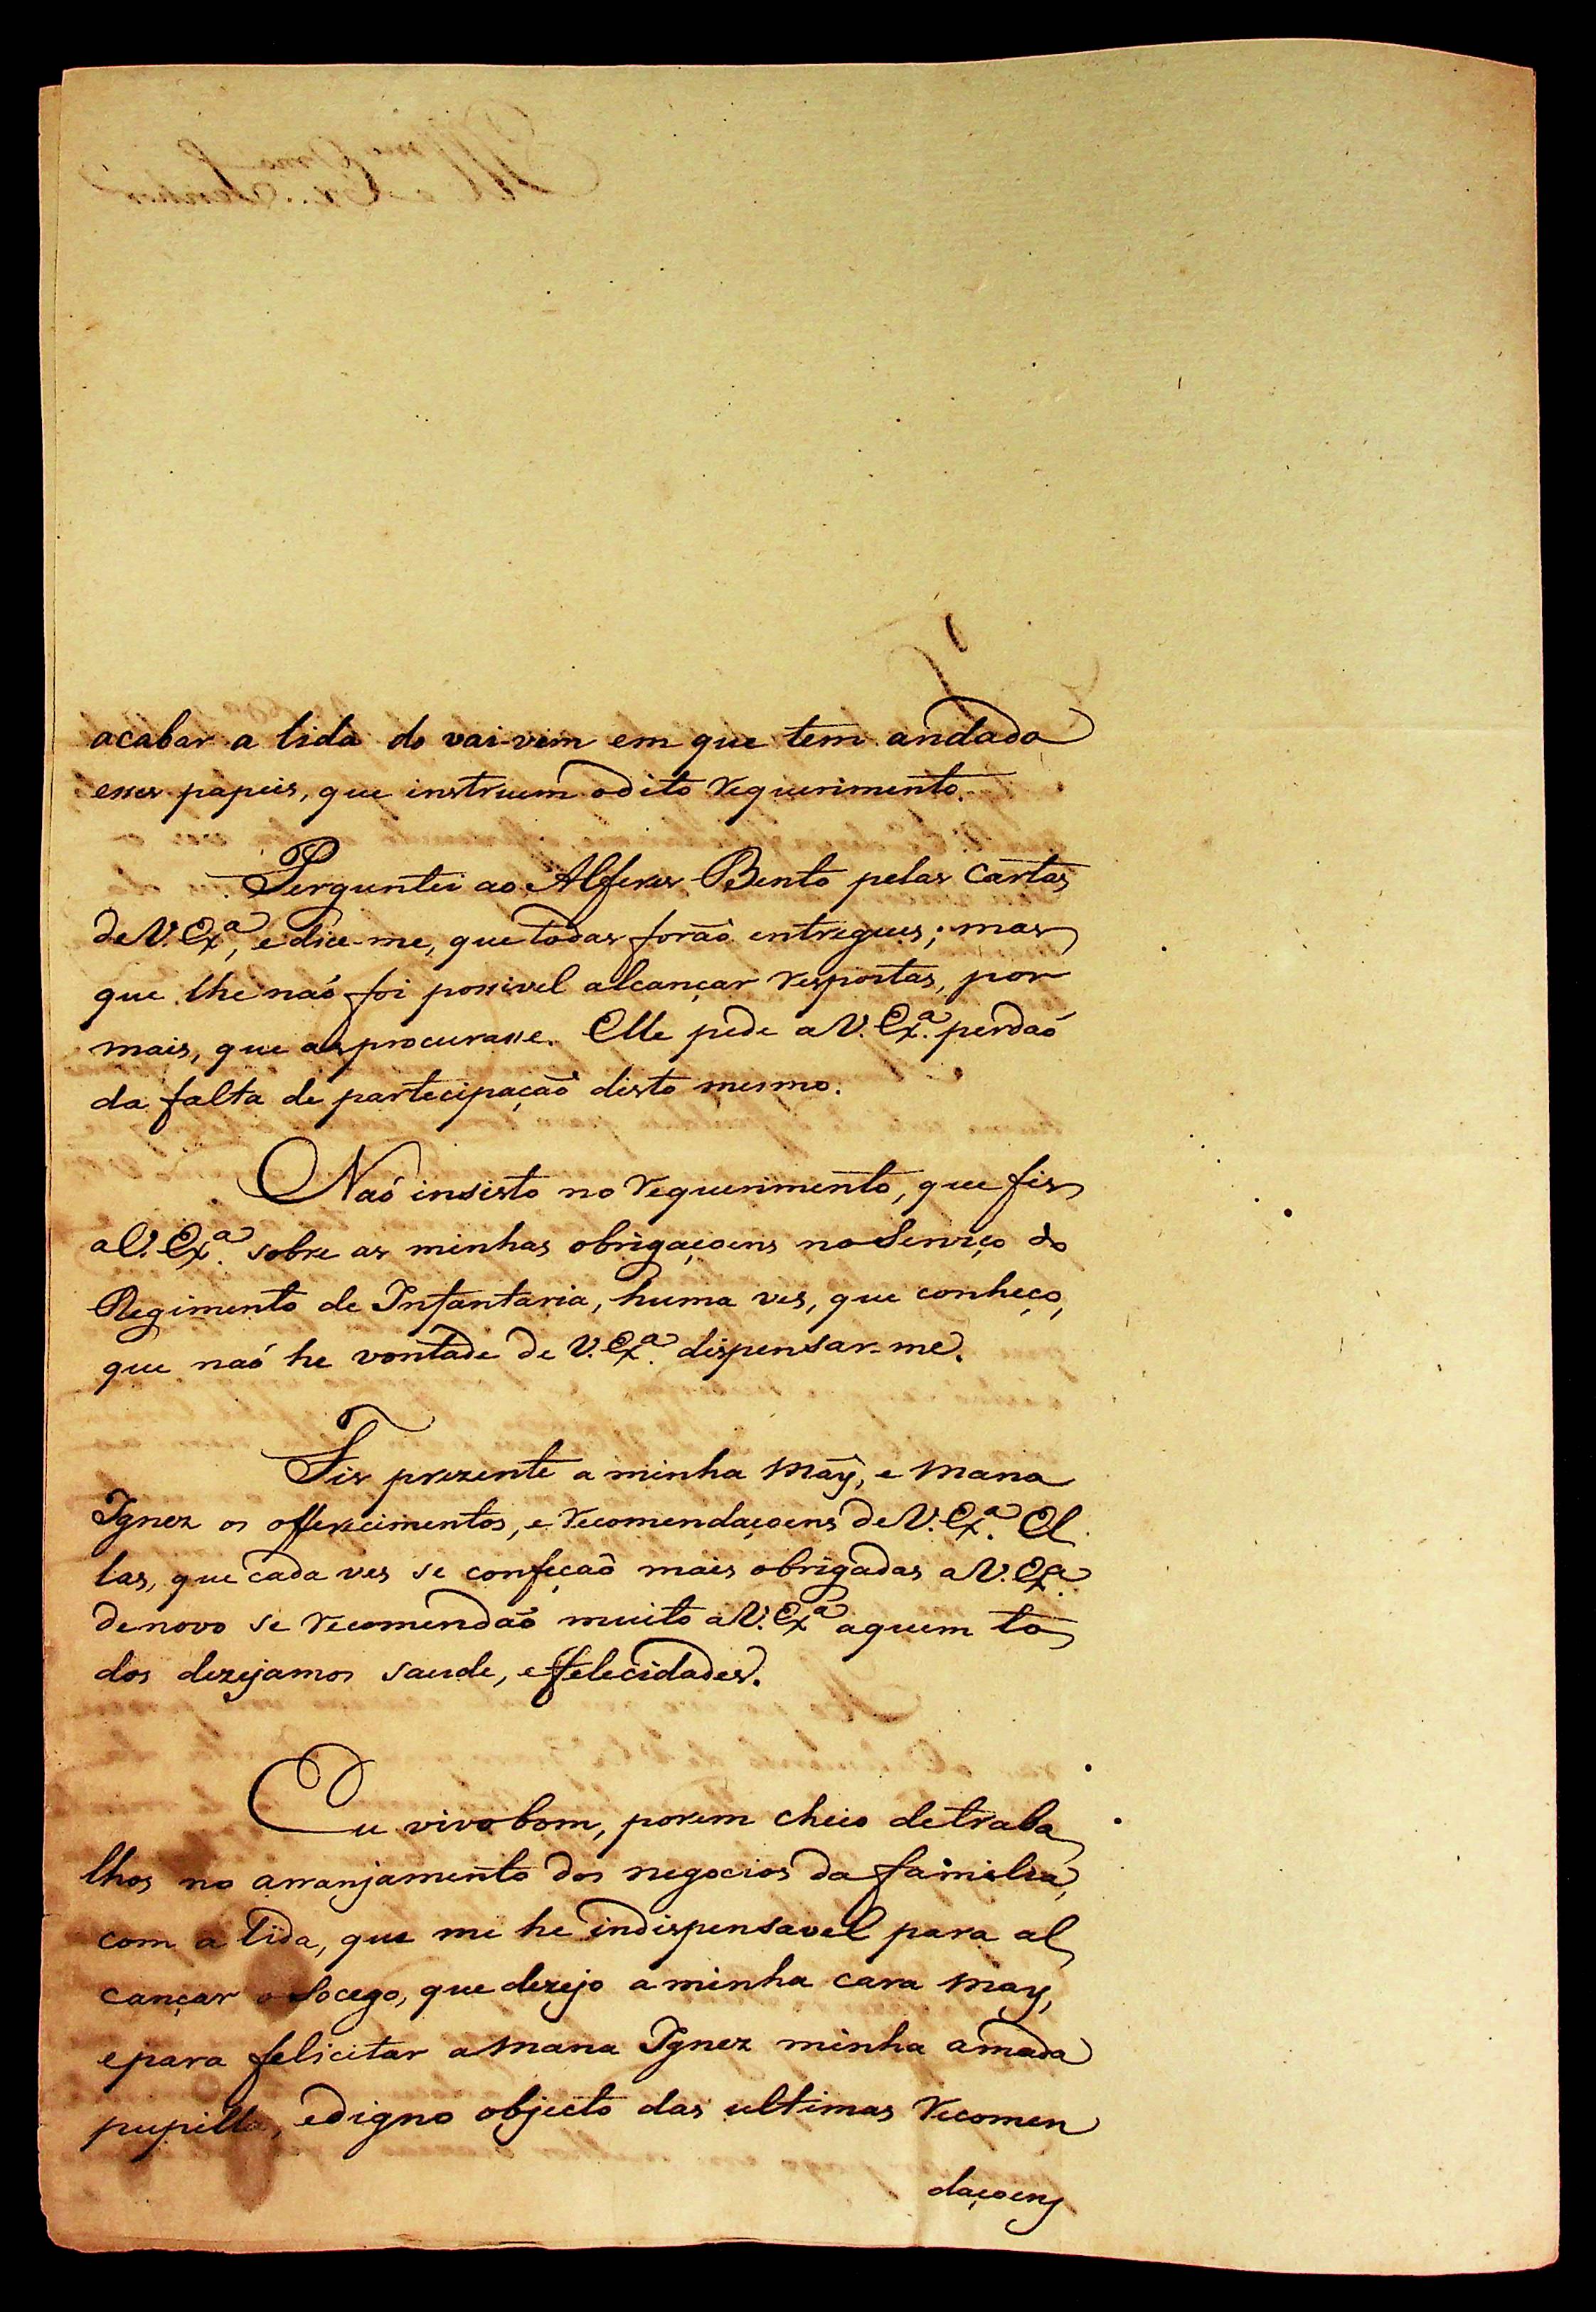 acabar a lida do vai-vem em que tem andado
esses papeis, que instruem o dito requerimento.
Perguntei ao Alferes Bento pelas Cartas
de V. Exª, e dice-me, que todas foraõ entregues; mas
que lhe naõ foi possivel alcançar respostas, por
mais, que as procurasse. Elle pede a V. Exª. perdaõ
da falta de partecipaçaõ disto mesmo.
Naõ insisto no requerimento, que fis
a V. Exª. sobre as minhas obrigaçoens no Serviço do
Regimento de Infantaria, huma ves, que conheço,
que naõ he vontade de V. Exª. dispensar-me.
Fis prezente a minha Maỹ, e Mana
Ignez os offerecimentos, e recomendaçoens de V. Exª. El
las, que cada ves se confeçaõ mais obrigadas a V. Exª.
de novo se recomendaõ muito a V. Exª aquem to
dos dezejamos saude, e felecidades.
Eu vivo bom, porem cheio de traba
lhos no arranjamento dos negocios da familia,
com a lida, que me he indispensavel para al
cançar o Socego, que dezejo a minha cara May,
e para felicitar a Mana Ignez minha amada
pupilla, e digno objecto das ultimas recomen
daçoens